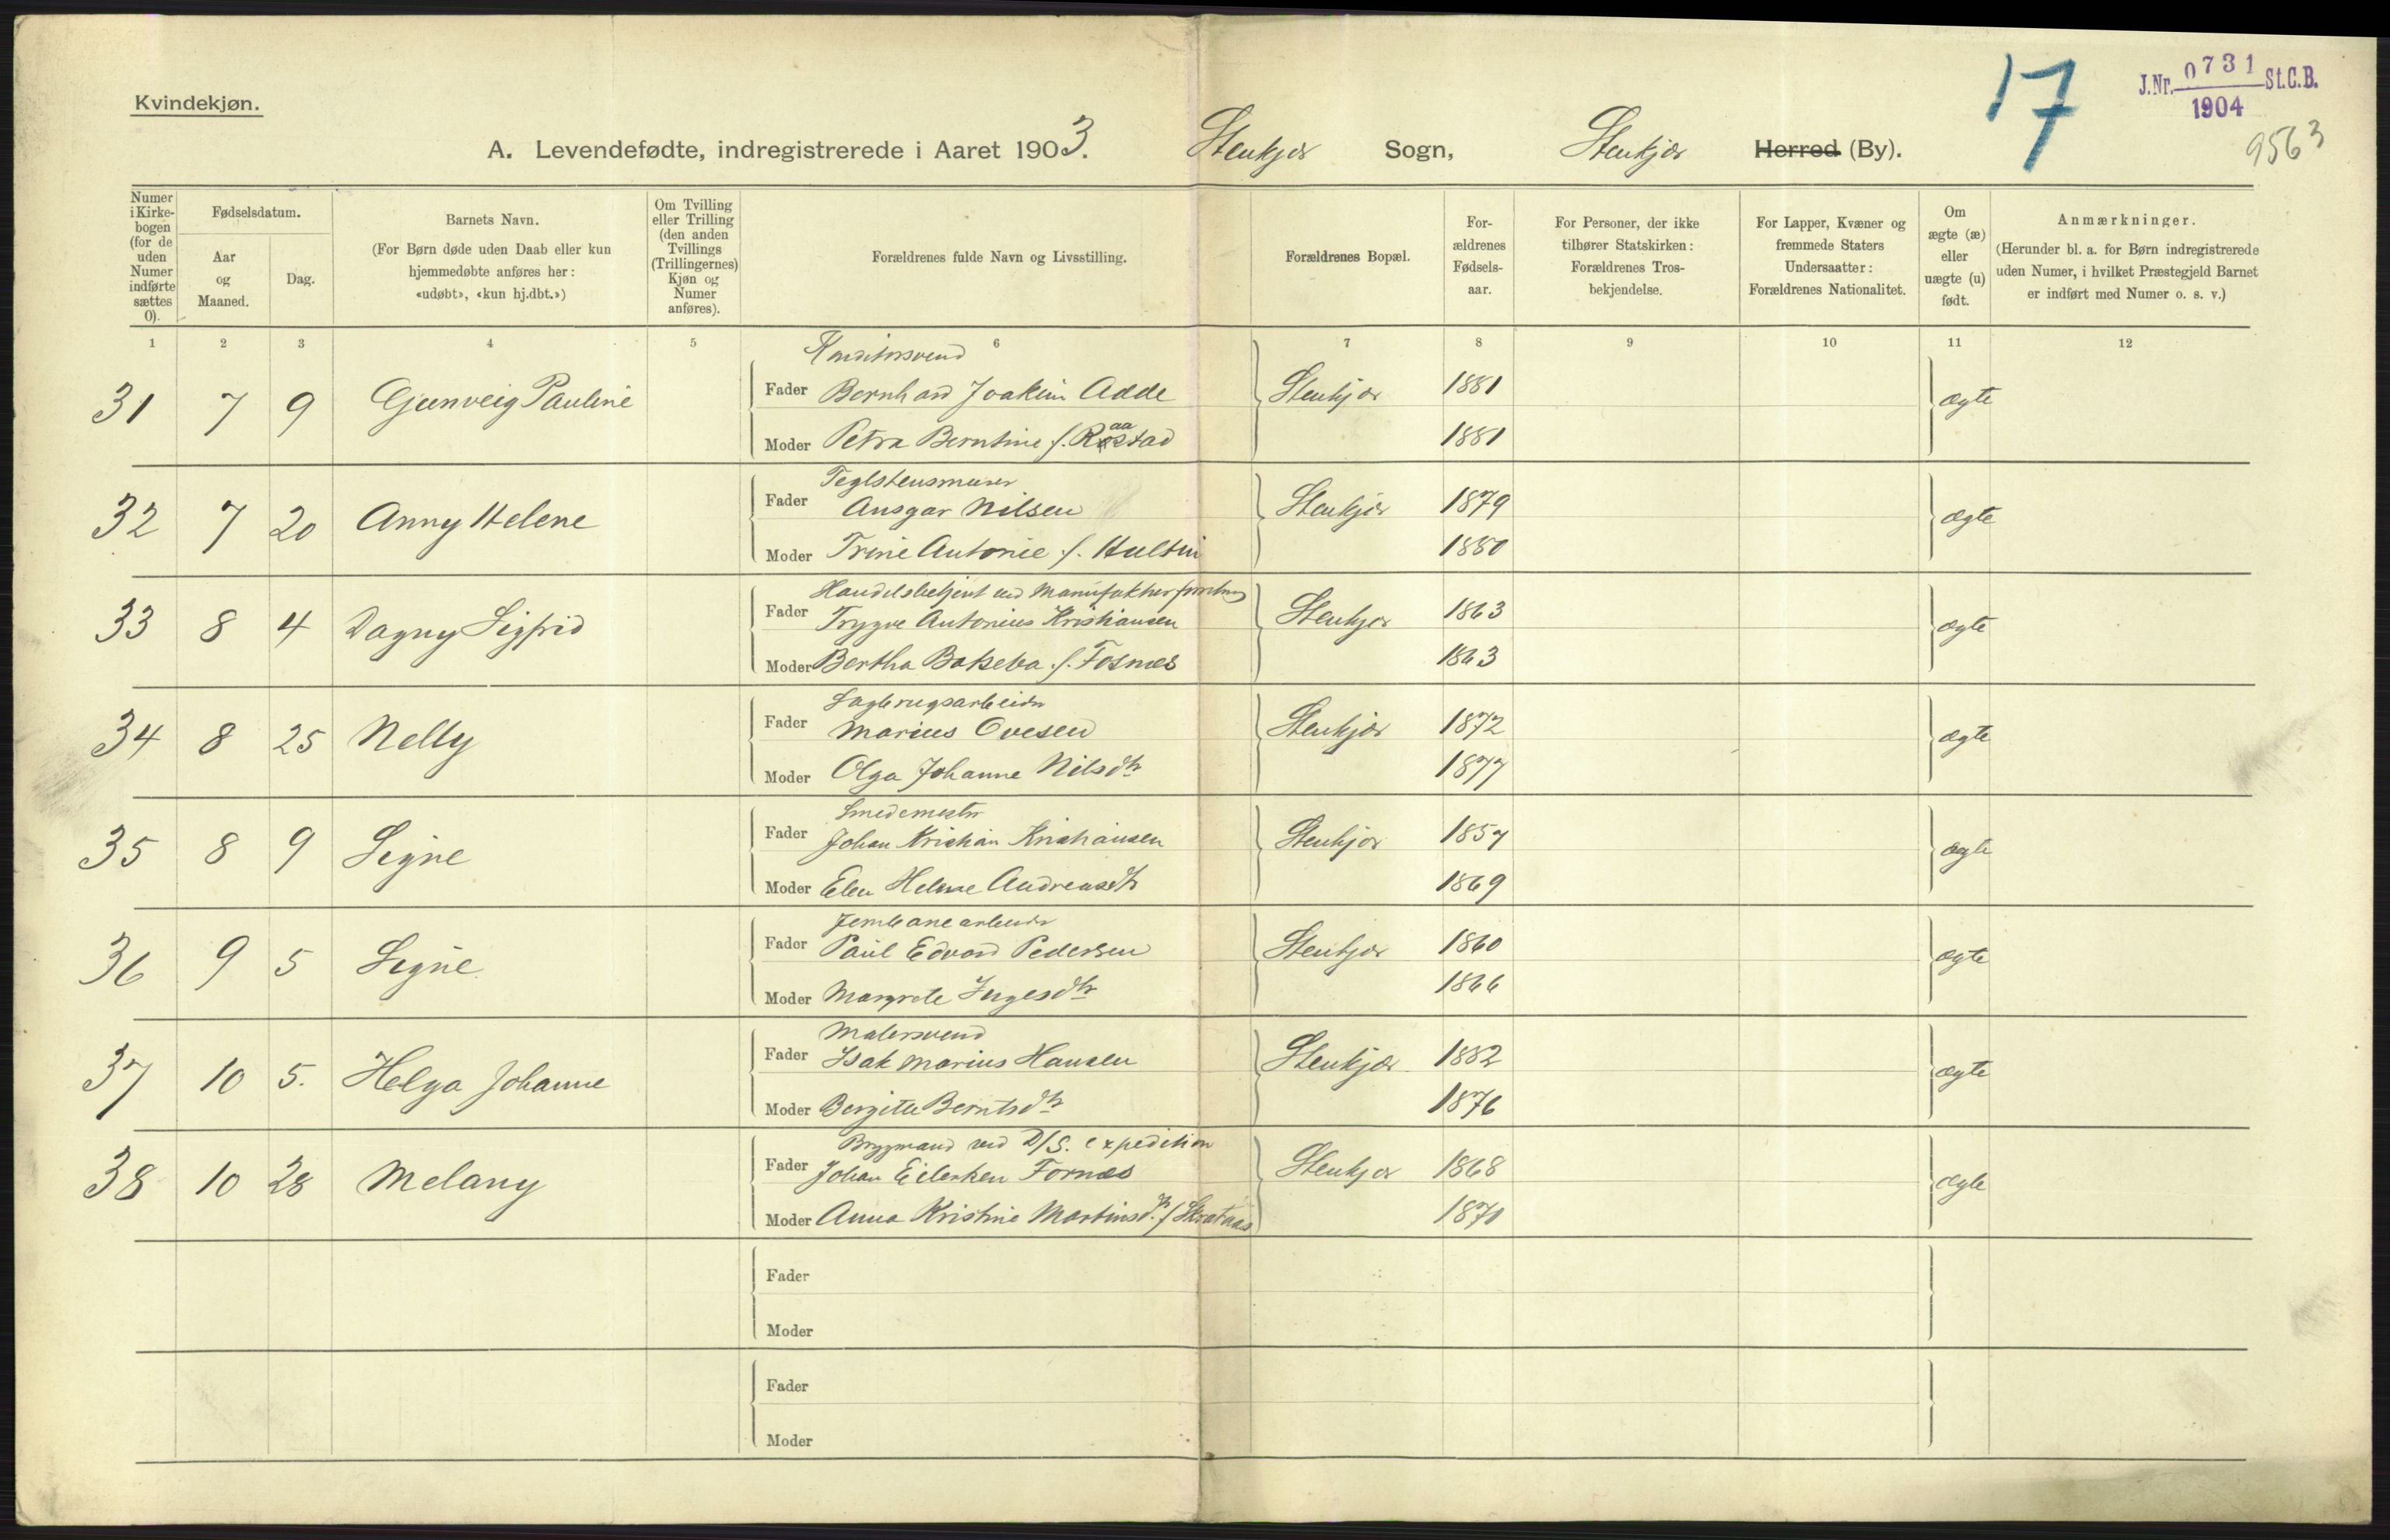 Kvindekjøn.
17
J.Nr. 0731 St.C.B.
1904
9563
A. Levendefødte, indregistrerede i Aaret 1903. Stenkjær Sogn, Stenkjær Herred (By).
Numer i Kirkebogen (for de uden Numer indførte sættes 0).
Fødselsdatum.
Aar og Maaned.
Dag.
Barnets Navn.
(For Børn døde uden Daab eller kun hjemmedøbte anføres her: «udøbt», «kun hj.dbt.»)
Om Tvilling eller Trilling (den anden Tvillings (Trillingernes) Kjøn og Numer anføres).
Forældrenes fulde Navn og Livsstilling.
Forældrenes Bopæl.
Forældrenes Fødselsaar.
For Personer, der ikke tilhører Statskirken: Forældrenes Trosbekjendelse.
For Lapper, Kvæner og fremmede Staters Undersaatter: Forældrenes Nationalitet.
Om ægte (æ) eller uægte (u) født.
Anmærkninger.
(Herunder bl. a. for Børn indregistrerede uden Numer, i hvilket Præstegjeld Barnet er indført med Numer o. s. v.)
1 2 3 4 5 6 7 8 9 10 11 12
Konditorsvend
31 7 9 Gjenveig Pauline Fader Bernhard Joakim Adde Stenkjær 1881 ægte
Moder Petra Berntine f. Raastad 1881
Teglstensmurer
32 7 20 Anny Helene Fader Ansgar Nilsen Stenkjær 1879 ægte
Moder Trine Antonie f. Hultin 1880
Handelsbetjent ved Manufakturforretning
33 8 4 Dagny Sigfrid Fader Trygve Antonius Kristiansen Stenkjær 1863 ægte
Moder Bertha Batseba f. Fosnes 1863
Sagbrugsarbeider
34 8 25 Nelly Fader Marius Ovesen Stenkjær 1872 ægte
Moder Olga Johanne Nilsdtr 1877
Smedemester
35 8 9 Signe Fader Johan Kristian Kristiansen Stenkjær 1857 ægte
Moder Elen Helene Andreasdtr 1869
Jernbanearbeider
36 9 5 Signe Fader Paul Edvard Pedersen Stenkjær 1860 ægte
Moder Margrete Ingesdtr 1866
Malersvend
37 10 5. Helga Johanne Fader Isak Marius Hansen Stenkjær 1882 ægte
Moder Bergitte Berntsdtr 1876
Brygmand ved D/S. expedition
38 10 28 Melany Fader Johan Eilertsen Fornæs Stenkjær 1868 ægte
Moder Anna Kristine Martinsdtr. f. Skrataas 1870
Fader
Moder
Fader
Moder